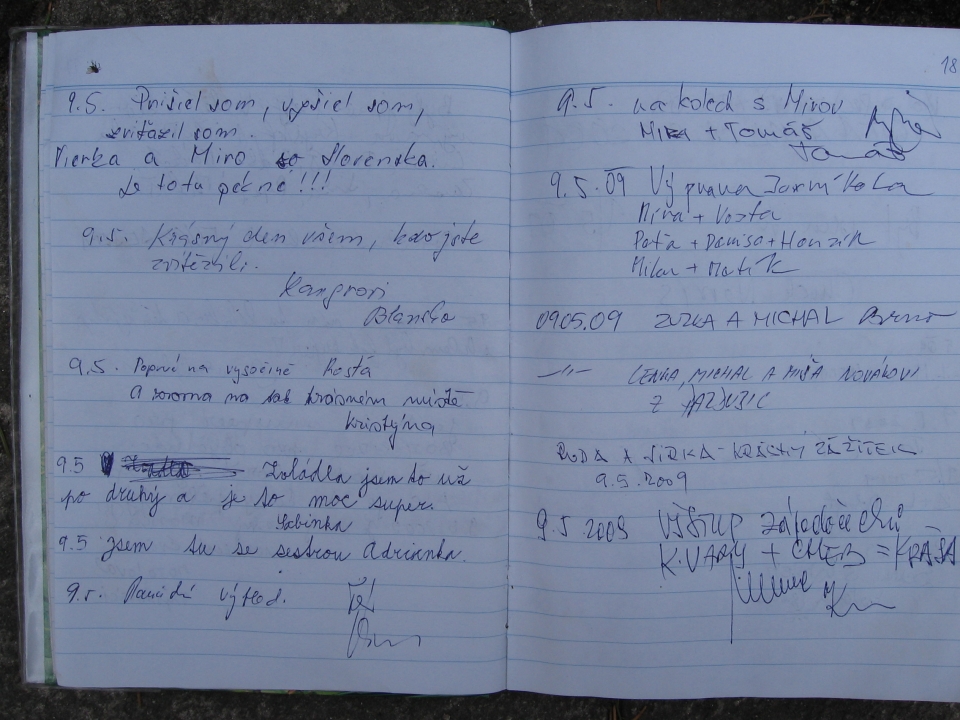 9.5. Prišiel som, vyšiel som,
zvíťazil som.
Vierka a Miro so Slovenska.
Je to tu pekné!!!
9.5. Krásný den všem, kdo jste
zvítězili.
Kangrovi
Blansko
9.5. Poprvé na vysočině
A zrovna na tak krásném místě
Kristýna
9.5 Zvládla jsem to už
po druhý a je to moc super.
Sabinka
9.5 Jsem tu se sestrou Adrianka.
9.5. výhled.
18
9.5. na kolech s Mírou
MIRA + TOMÁŠ
Tomáš
9.5.09 Výprava
Míra + Vosta
Paťa + Denisa + Honzík
Milan + Matík
09.05.09 ZUZKA A MICHAL Brno
—"— LENKA, MICHAL A MÍŠA NOVÁKOVI
Z PARDUBIC
A JIRKA - KRÁSNÝ ZÁŽITEK
9.5.2009
9.5.2009 VÝSTUP západočechů
K.VARY + CHEB = KRÁSA